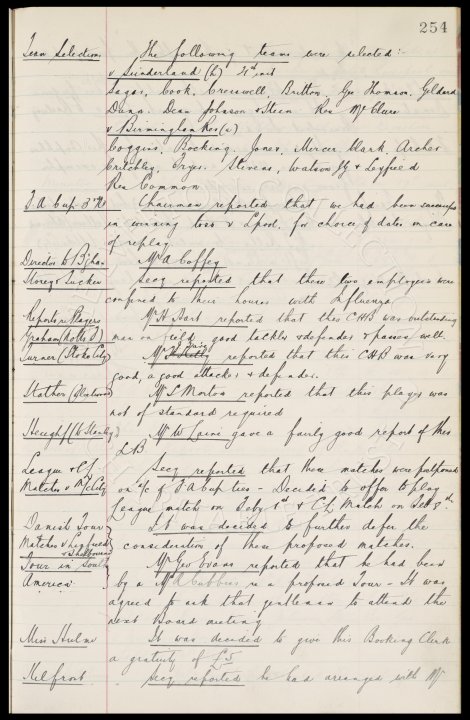 254
Team Selections The following teams were selected:-
v Sunderland (h) 21st inst
Sagar, Cook, Cresswell, Britton, Geo Thomson, Geldard
Dunn. Dean Johnson & Stein Res McClure
v Birmingham Res (a)
Coggins, Bocking, Jones, Mercer, Clark, Archer
Critchley, Stevens, Watson Jy & Leyfield
Res Common
F.A Cup 3rd Rd Chairman reported that we had been successful
in winning toss v Lpool, for choice of dates in case
of replay
Director to B'ham Mr A Coffey
Storey & Tucker Secy reported that these two employees were
confined to their houses with Influenza
Reports re Players Mr H Dart reported that this C.H.B was outstanding
Graham (Notts F) man on field good tackler & defender & passes well.
Turner (Stoke City) Mr reported that this C.H.B was very
good, a good attacker & defender.
Stather Mr S Morton reported that this player was
not of standard required
(W Stanley) Mr W Laini gave a fairly good report of this
L.B
League & C.L. Secy reported that these matches were postponed
Matches v McCity on a/c of F.A Cup ties - Decided to offer to play
League match on Feby 1st & C.L Match on Feb 8th
Danish Tour It was decided to further defer the
Matches v consideration of these proposed matches.
& Shelbourne
Tour in South Mr Geo Evans reported that he had been
America by a Mr A Cubbins re a proposed Tour - It was
agreed to ask that gentleman to attend the
next Board meeting
Miss Hulme It was decided to give this Booking Clerk
a gratuity of £5
Secy reported he had arranged with Mr